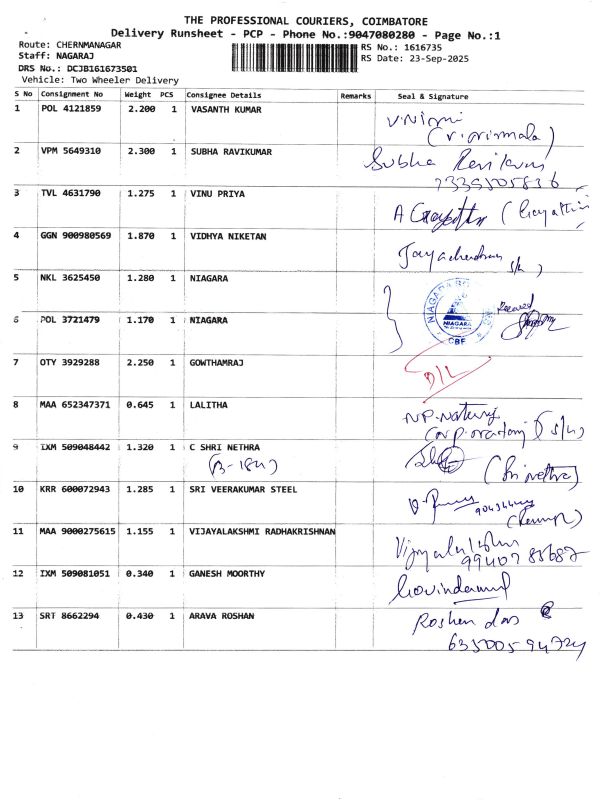 THE PROFESSIONAL COURIERS, COIMBATORE
Delivery Runsheet - PCP - Phone No.:9047080280 - Page No.:1
Route: CHERNMANAGAR
Staff: NAGARAJ
DRS No.: DCJB161673501
Vehicle: Two Wheeler Delivery
RS No.: 1616735
RS Date: 23-Sep-2025
S No Consignment No Weight PCS Consignee Details Remarks Seal & Signature
1 POL 4121859 2.200 1 VASANTH KUMAR
2 VPM 5649310 2.300 1 SUBHA RAVIKUMAR Subha
3 TVL 4631790 1.275 1 VINU PRIYA
4 GGN 900980569 1.870 1 VIDHYA NIKETAN
5 NKL 3625450 1.280 1 NIAGARA Received
NIAGARA
CBE
6 POL 3721479 1.170 1 NIAGARA
7 OTY 3929288 2.250 1 GOWTHAMRAJ D/L
8 MAA 652347371 0.645 1 LALITHA
9 IXM 509048442 1.320 1 C SHRI NETHRA
10 KRR 600072943 1.285 1 SRI VEERAKUMAR STEEL
11 MAA 9000275615 1.155 1 VIJAYALAKSHMI RADHAKRISHNAN
12 IXM 509081051 0.340 1 GANESH MOORTHY
13 SRT 8662294 0.430 1 ARAVA ROSHAN Roshan das